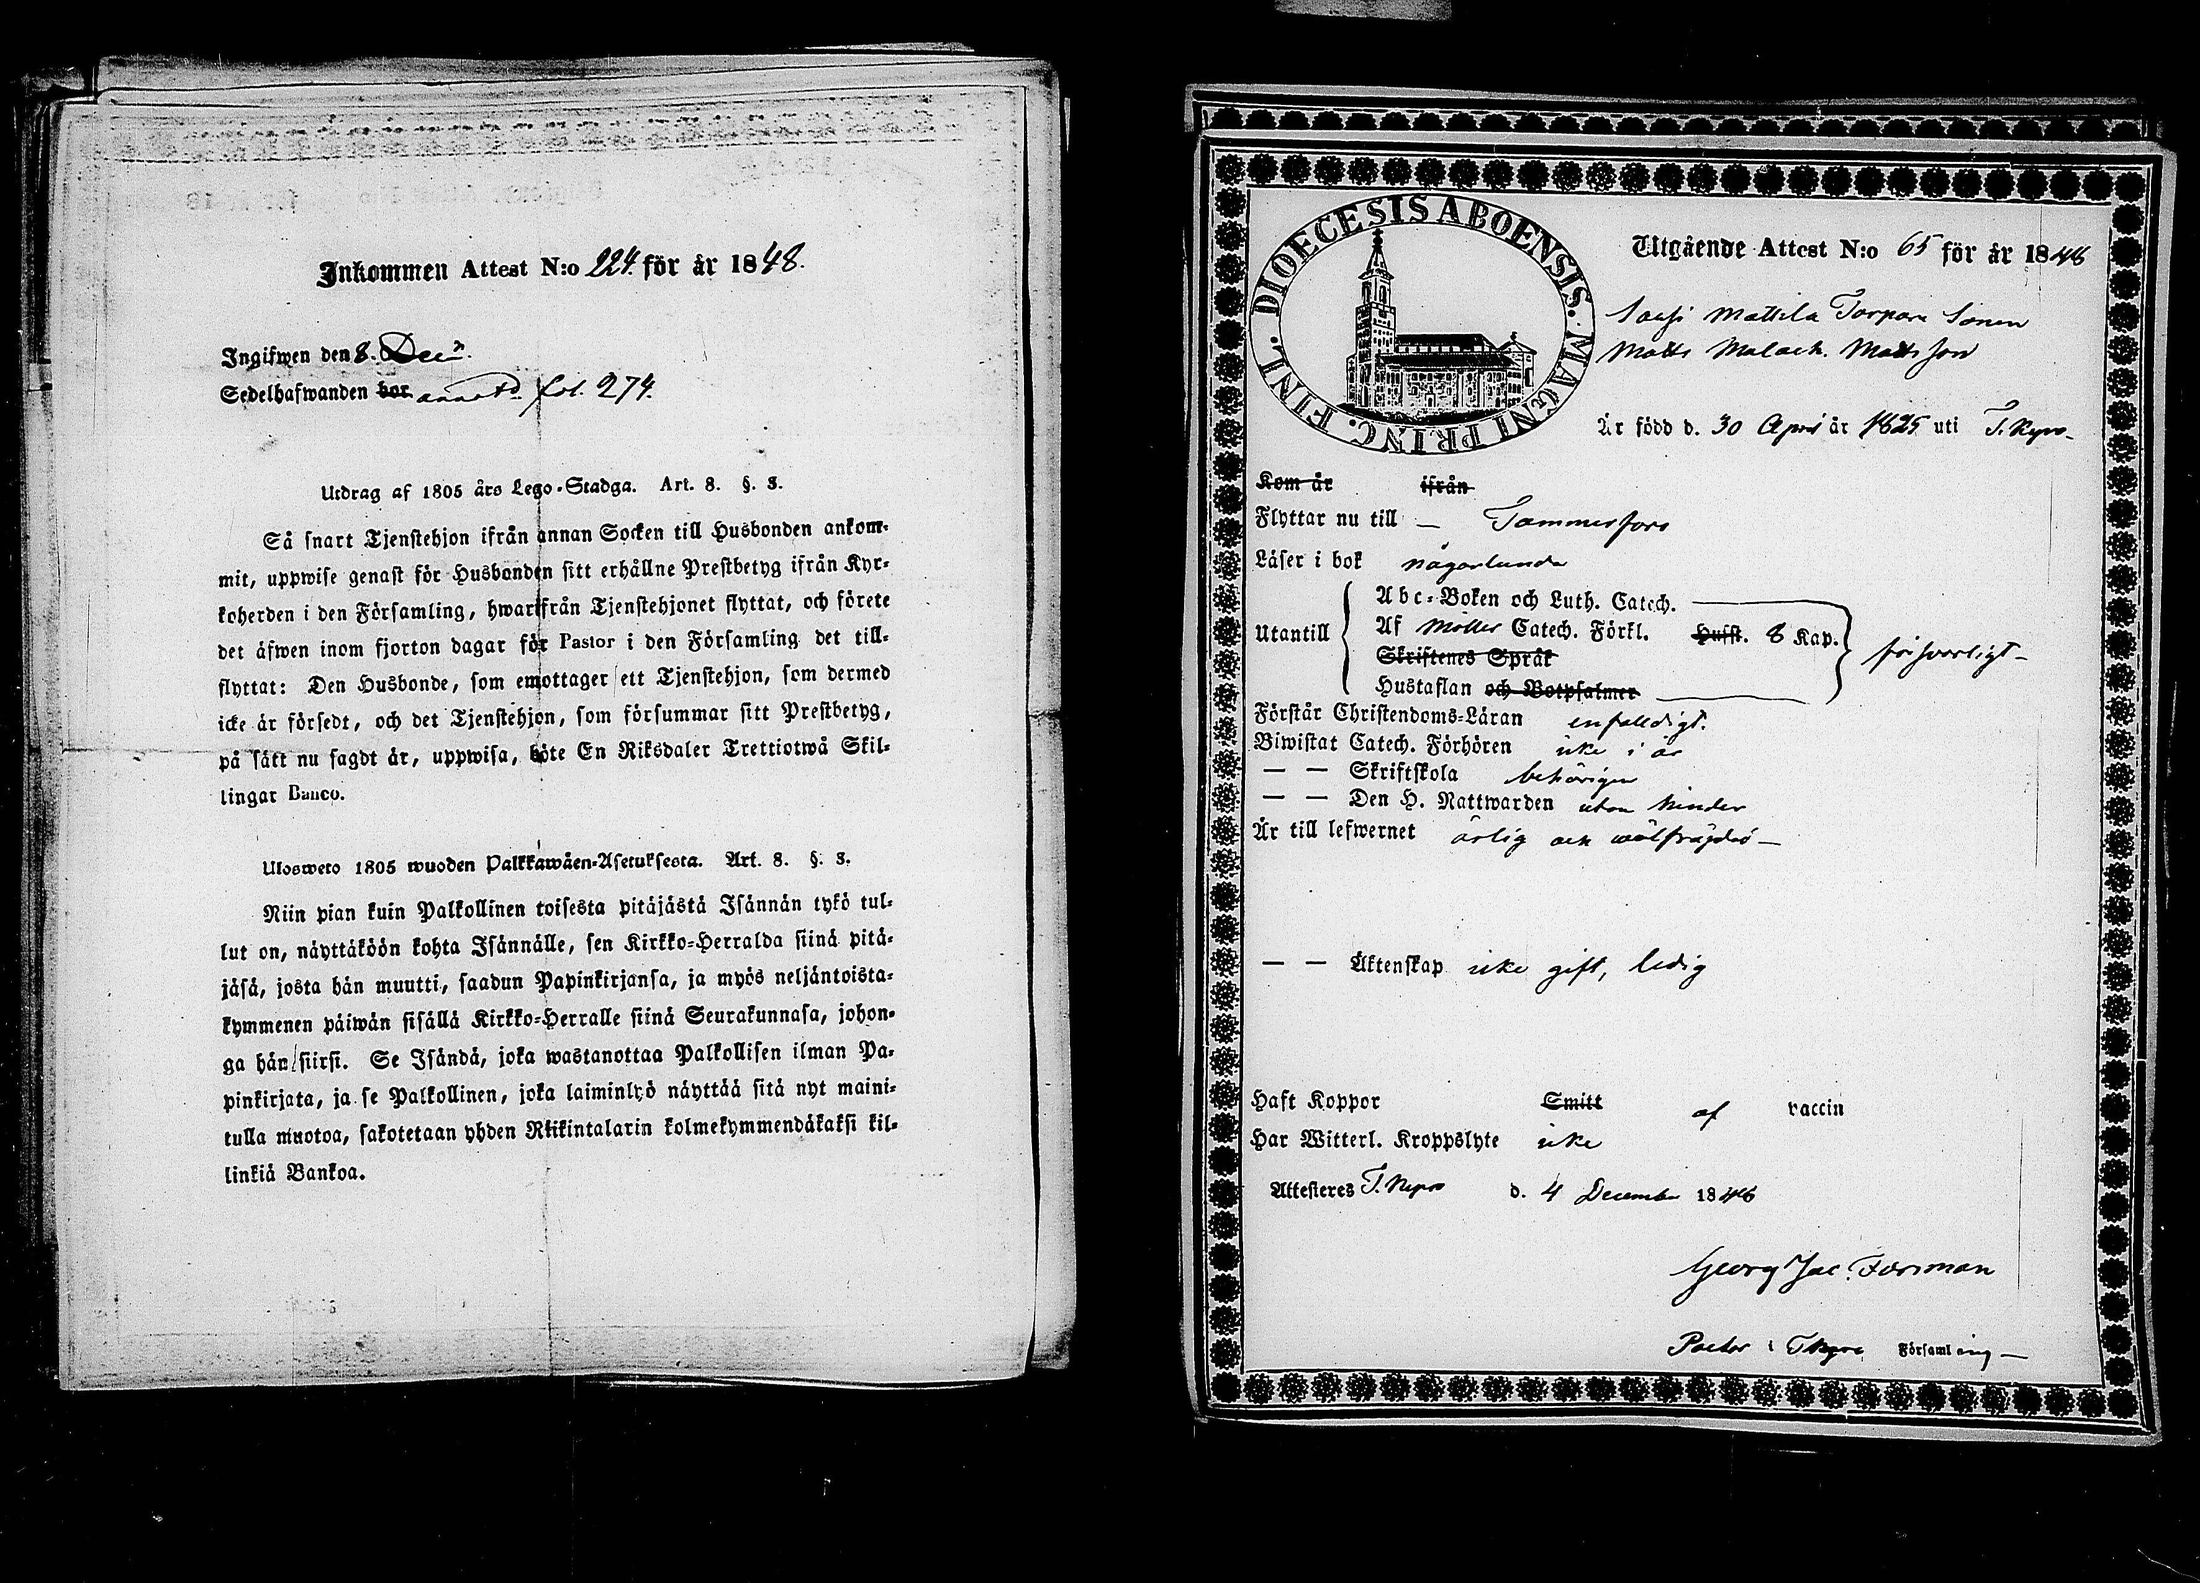 Inkommen Attest N:o 224. för år 1848.
Ingifwen den 8. Dec.
Sedelhafwanden bor annot. fol. 274.
Utdrag af 1805 års Lego-Stadga. Art. 8. §. 3.
Så snart Tjenstehjon ifrån annan Socken till Husbonden ankom-
mit, uppwise genast för Husbonden sitt erhållne Prestbetyg ifrån Kyr-
koherden i den Församling, hwarifrån Tjenstehjonet flyttat, och förete
det äfwen inom fjorton dagar för Pastor i den Församling det till-
flyttat: Den Husbonde, som emottager ett Tjenstehjon, som dermed
icke är försedt, och det Tjenstehjon, som försummar sitt Prestbetyg,
på sätt nu sagdt är, uppwisa, böte En Riksdaler Trettiotwå Skil-
lingar Banco.
Ulosweto 1805 wuoden Palkkawäen-Asetuksesta. Art. 8. §. 3.
Niin pian kuin Palkollinen toisesta pitäjästä Isännän tykö tul-
lut on, näyttäköön kohta Isännälle, sen Kirkko-Herralda siinä pitä-
jäsä, josta hän muutti, saadun Papinkirjansa, ja myös neljäntoista-
kymmenen päiwän sisällä Kirkko-Herralle siinä Seurakunnasa, johon-
ga hän siirsi. Se Isändä, joka wastanottaa Palkollisen ilman Pa-
pinkirjata, ja se Palkollinen, joka laiminlyö näyttää sitä nyt maini-
tulla muotoa, sakotetaan yhden Riikintalarin kolmekymmendäkaksi kil-
linkiä Bankoa.
DIOECESIS ABOENSIS. MAGNI PRINC. FINL.
Utgående Attest N:o 65 för år 1848
Mattila Torpare Sonen
Matts Malach. Mattsson
Är född d. 30 April år 1825 uti T. Kyro
Kom år ifrån
Flyttar nu till — Tammerfors
Läser i bok någorlunda
Abc-Boken och Luth. Catech.
Utantill Af Möllers Catech. Förkl. Hufst. 8 Kap. försvarligt —
Skriftenes Språk
Hustaflan och Botpsalmer
Förstår Christendoms-Läran enfalldigt.
Biwistat Catech. Förhören icke i år
— — Skriftskola behörigen
— — Den H. Nattwarden utan hinder
Är till lefwernet ärlig och wälfräjdad —
— — Äktenskap icke gift, ledig
Haft Koppor Smitt af vaccin
Har Witterl. Kroppslyte icke
Attesteres T. Kyro d. 4 December 1848
Georg Jac. Forsman
Pastor i T Kyro Församling —